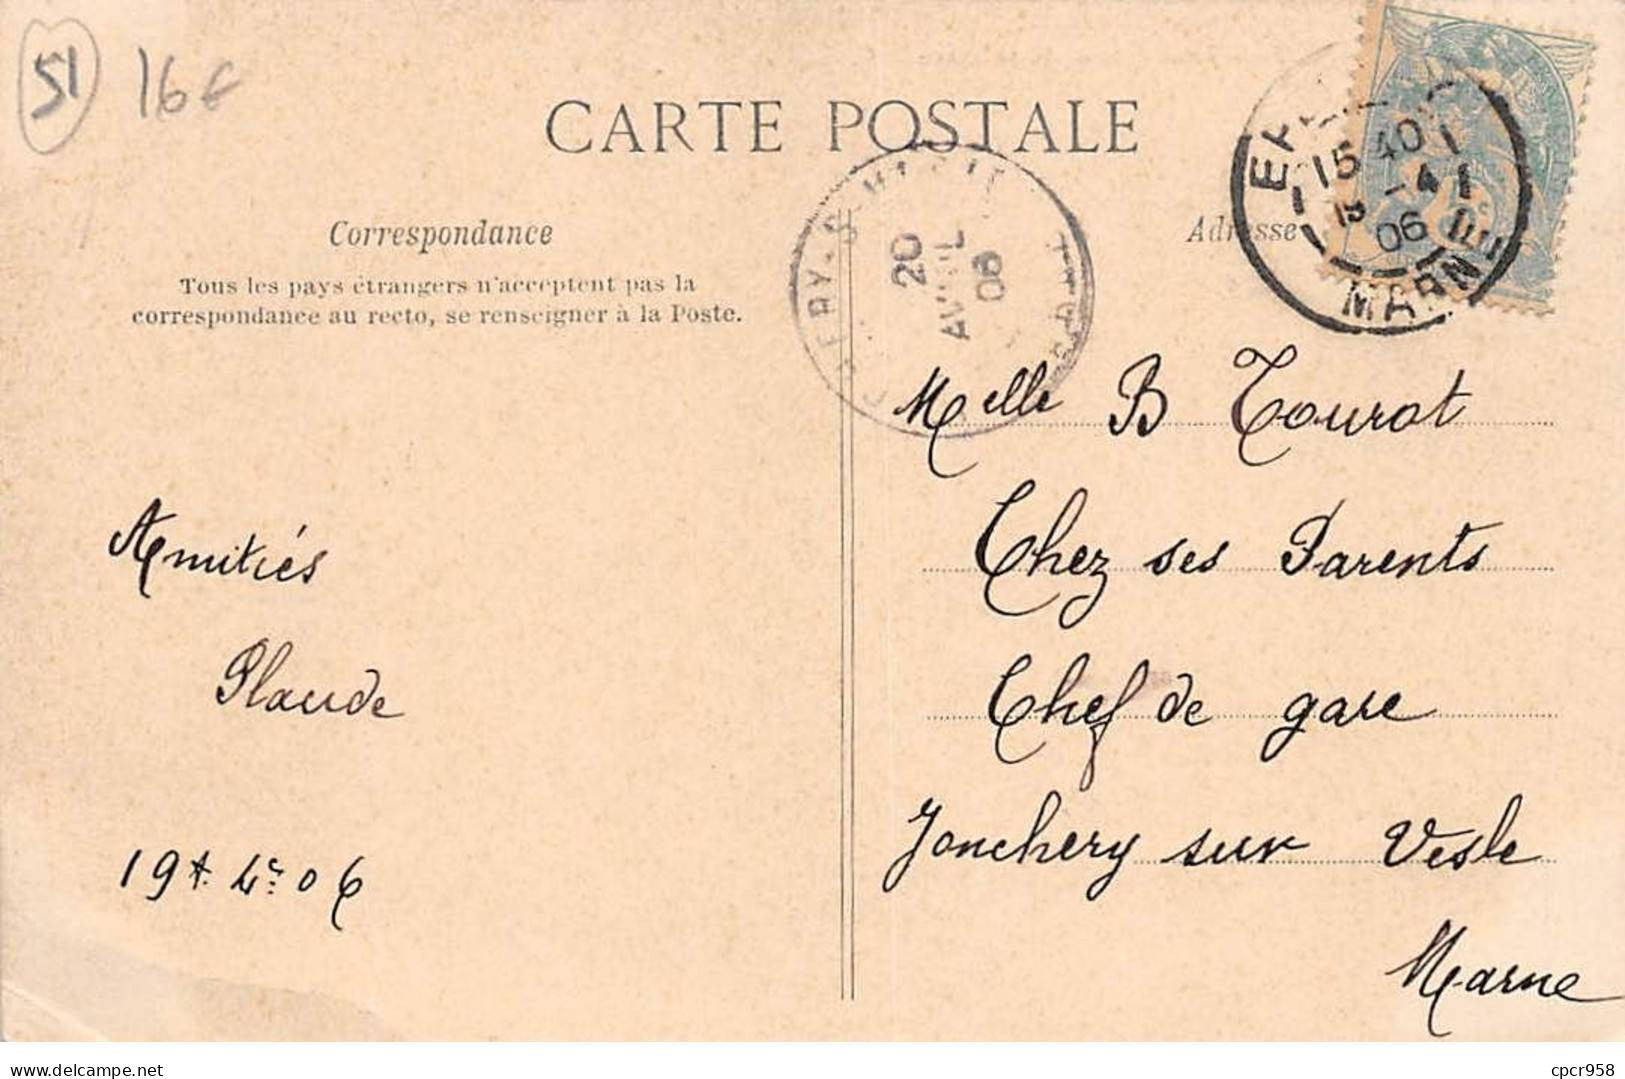 51 16€
CARTE POSTALE
Correspondance
Adresse
Tous les pays étrangers n'acceptent pas la
correspondance au recto, se renseigner à la Poste.
20
AVRIL
06
15 40
-4
06
MARNE
Melle B Tourot
Chez ses Parents
Chef de gare
Jonchery sur Vesle
Marne
Amitiés
19 4 06
delcampe.net
cpcr958